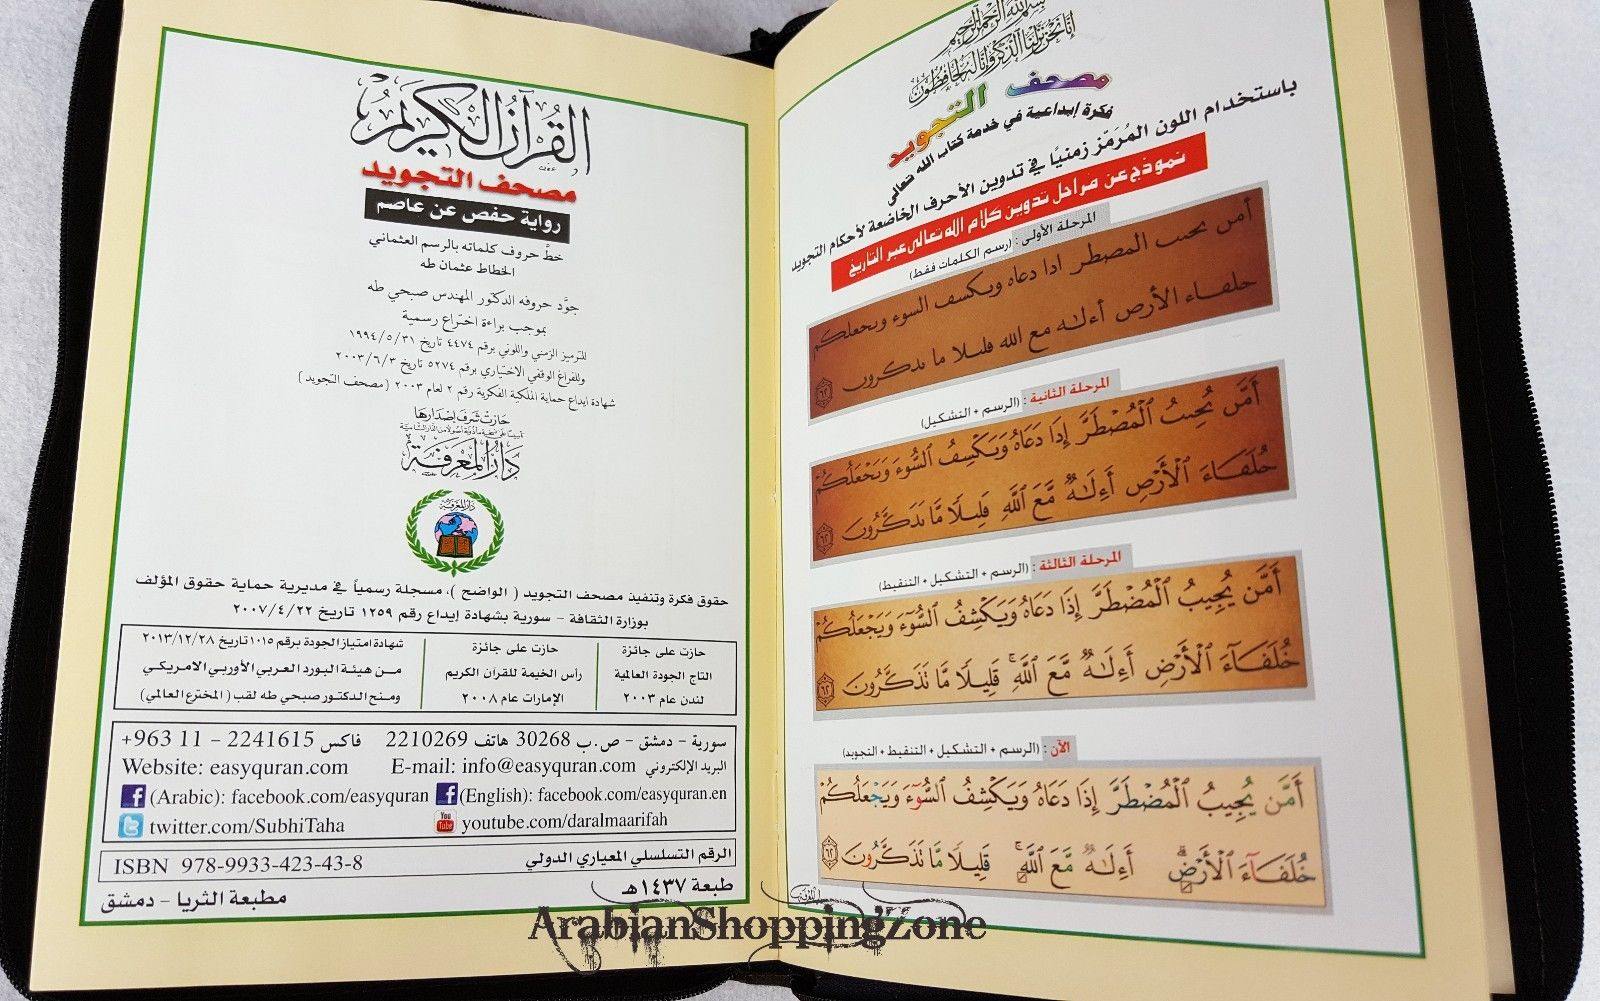 القرآن الكريم
مصحف التجويد
رواية حفص عن عاصم
خط حروف كلماته بالرسم العثماني
الخطاط عثمان طه
جوَّد حروفه الدكتور المهندس صبحي طه
بموجب براءة اختراع رسمية
للترميز الزمني واللوني برقم ٤٤٧٤ تاريخ ١٩٩٤/٥/٣١
وللفراغ الوقفي الاختياري برقم ٥٢٧٤ تاريخ ٢٠٠٣/٦/٣
شهادة إيداع حماية الملكية الفكرية رقم ٢ لعام ٢٠٠٣ (مصحف التجويد)
حازت شرف إصدارها
دار المعرفة
دار المعرفة
حقوق فكرة وتنفيذ مصحف التجويد ( الواضح )، مسجلة رسمياً في مديرية حماية حقوق المؤلف
بوزارة الثقافة - سورية بشهادة إيداع رقم ١٢٥٩ تاريخ ٢٠٠٧/٤/٢٢
حازت على جائزة
التاج الجودة العالمية
لندن عام ٢٠٠٣
حازت على جائزة
رأس الخيمة للقرآن الكريم
الإمارات عام ٢٠٠٨
شهادة امتياز الجودة برقم ١٠١٥ تاريخ ٢٠١٣/١٢/٢٨
من هيئة البورد العربي الأوربي الامريكي
ومنح الدكتور صبحي طه لقب (المخترع العالمي)
سورية - دمشق - ص.ب 30268 هاتف 2210269 فاكس 2241615 - 11 963+
البريد الإلكتروني E-mail: info@easyquran.com Website: easyquran.com
(Arabic): facebook.com/easyquran (English): facebook.com/easyquran.en
twitter.com/SubhiTaha You Tube youtube.com/daralmaarifah
الرقم التسلسلي المعياري الدولي ISBN 978-9933-423-43-8
طبعة ١٤٣٧هـ
مطبعة الثريا - دمشق
بسم الله الرحمن الرحيم
إنا نحن نزلنا الذكر وإنا له لحافظون
مصحف التجويد
فكرة إبداعية في خدمة كتاب الله تعالى
باستخدام اللون المُرَمّز زمنيًا في تدوين الأحرف الخاضعة لأحكام التجويد
نموذج عن مراحل تدوين كلام الله تعالى عبر التاريخ
المرحلة الأولى : (رسم الكلمات فقط)
المرحلة الثانية : (الرسم + التشكيل)
المرحلة الثالثة : (الرسم + التشكيل + التنقيط)
أَمَّن يُجِيبُ ٱلْمُضْطَرَّ إِذَا دَعَاهُ وَيَكْشِفُ ٱلسُّوٓءَ وَيَجْعَلُكُمْ
خُلَفَآءَ ٱلْأَرْضِ أَءِلَٰهٌ مَّعَ ٱللَّهِ قَلِيلًا مَّا تَذَكَّرُونَ ٦٢
الآن : (الرسم + التشكيل + التنقيط + التجويد)
أَمَّن يُجِيبُ ٱلْمُضْطَرَّ إِذَا دَعَاهُ وَيَكْشِفُ ٱلسُّوٓءَ وَيَجْعَلُكُمْ
خُلَفَآءَ ٱلْأَرْضِ أَءِلَٰهٌ مَّعَ ٱللَّهِ قَلِيلًا مَّا تَذَكَّرُونَ ٦٢
ArabianShoppingZone